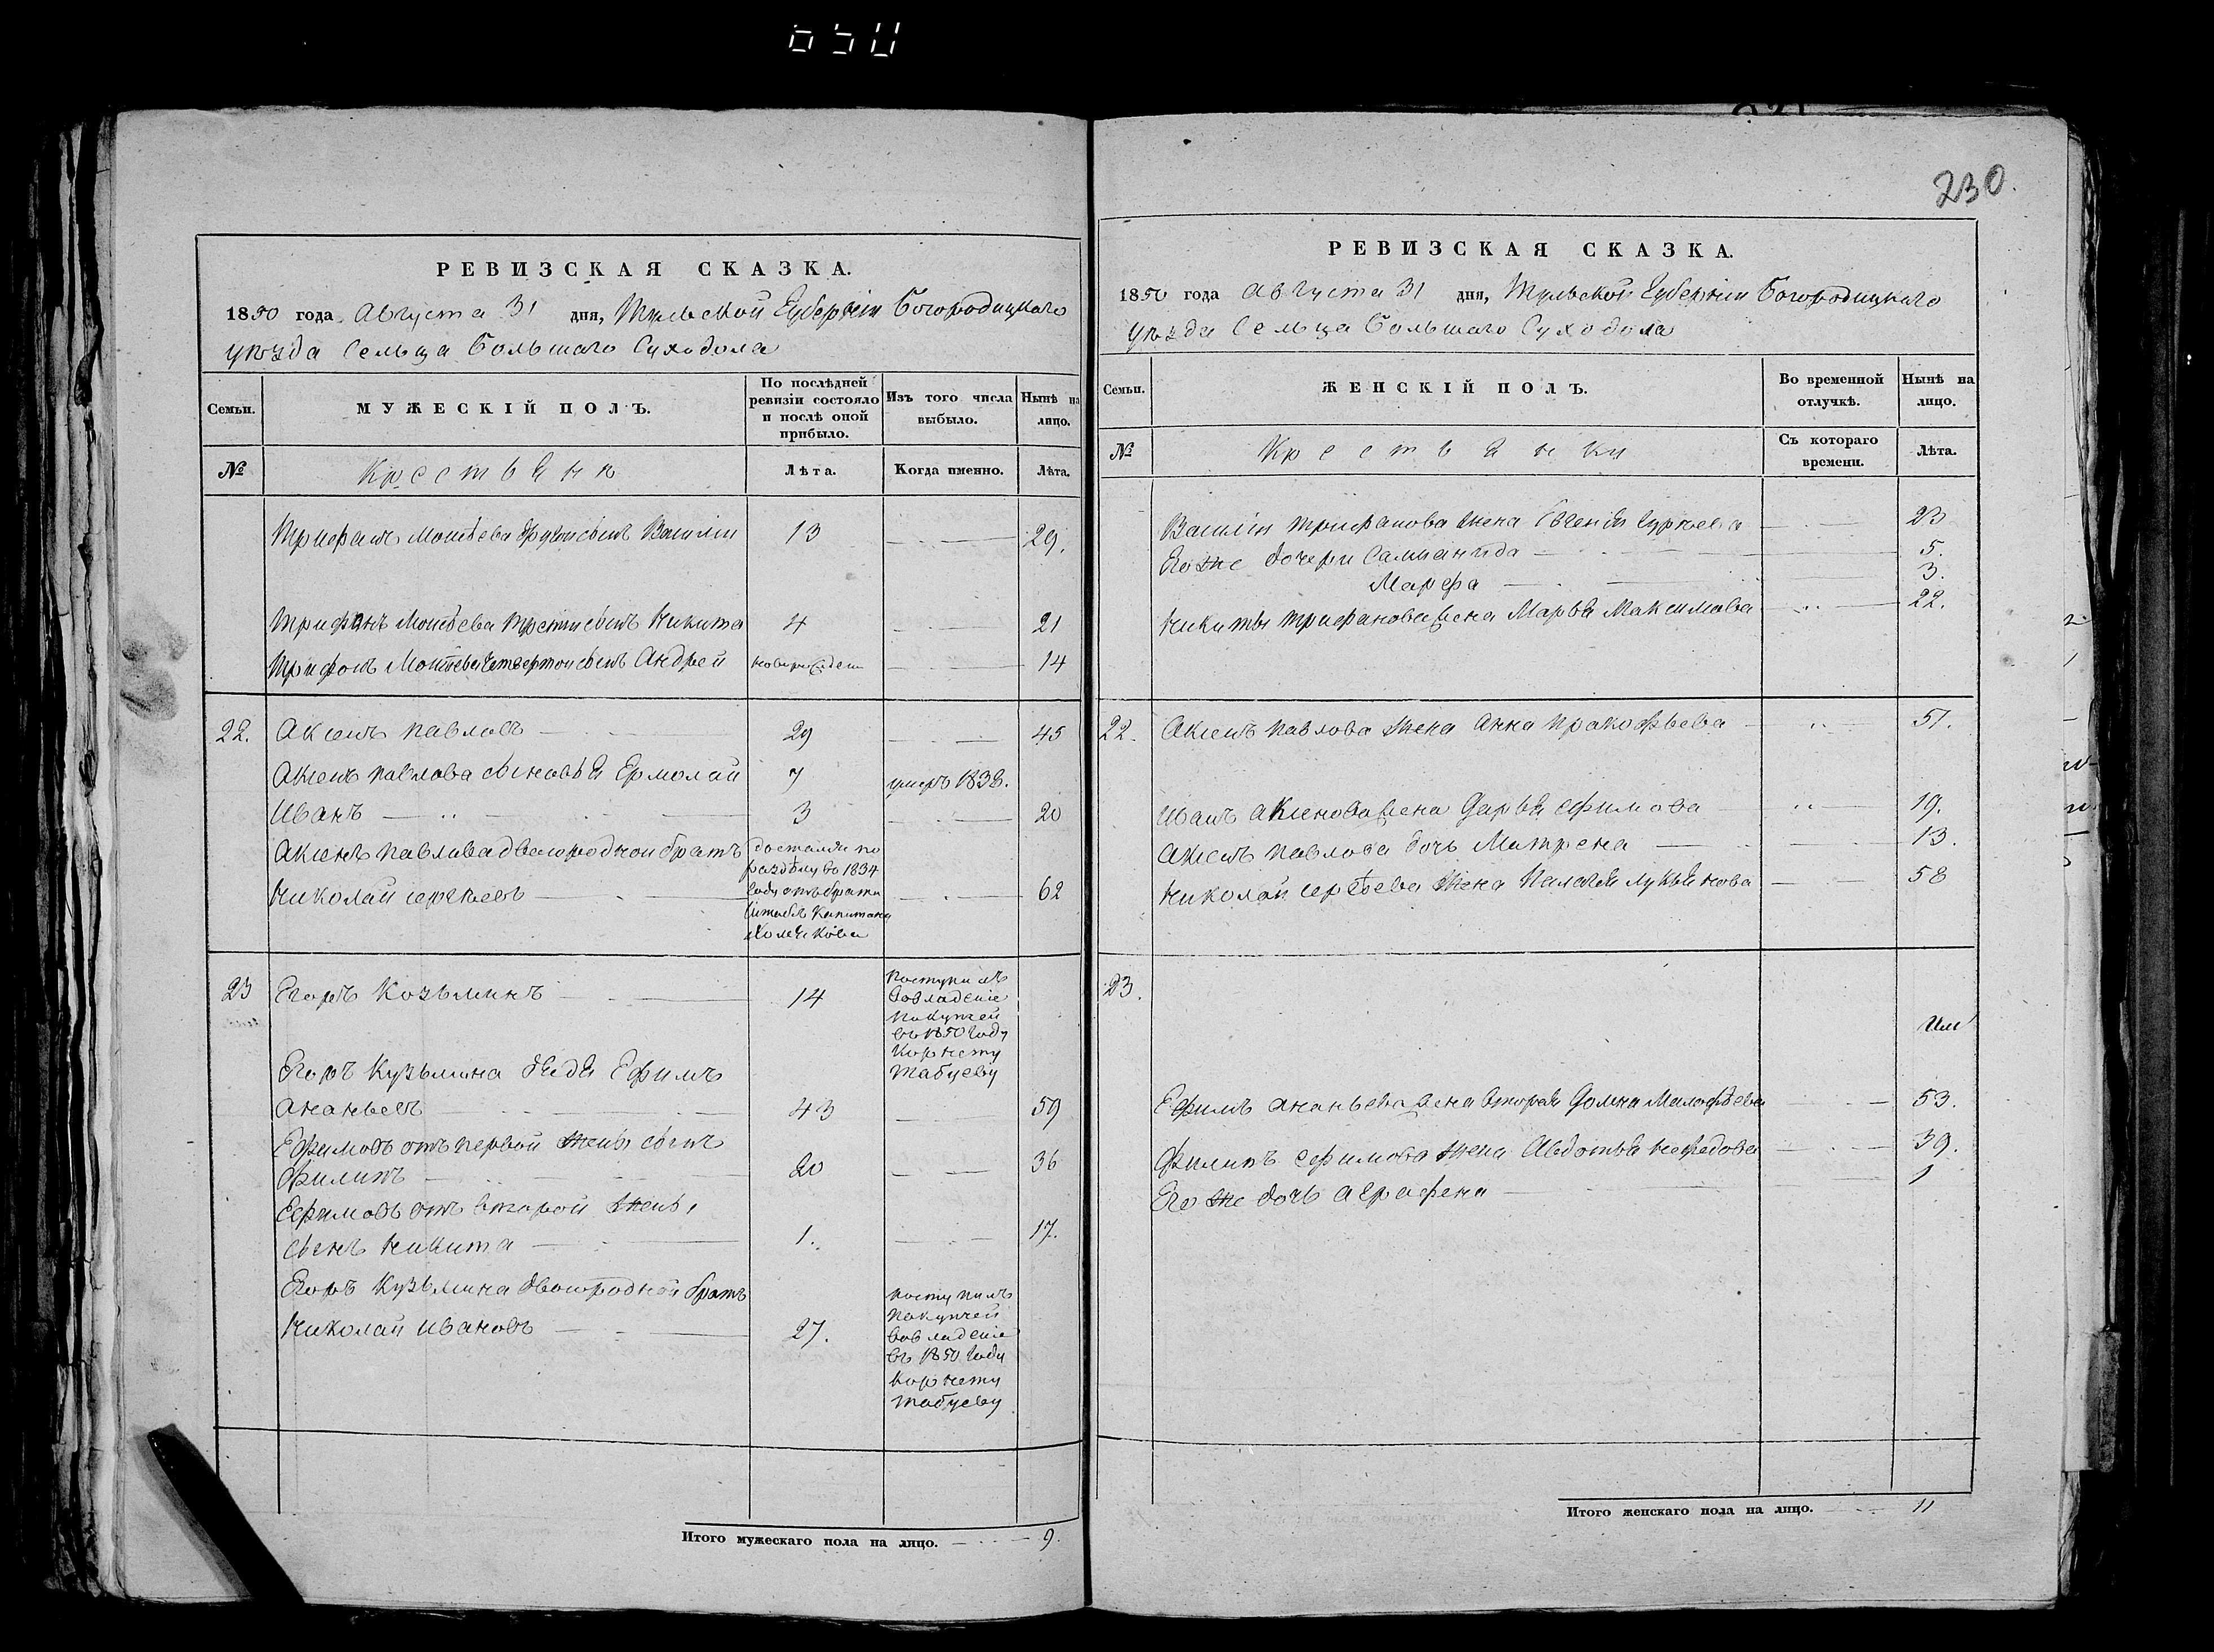 230.
РЕВИЗСКАЯ СКАЗКА.
1850 года Августа 31 дня, Тульской Губерніи Богородицкаго
уѣзда Сельца Большаго Суходола
Семьи.
МУЖЕСКІЙ ПОЛЪ.
По послѣдней ревизіи состояло и послѣ оной прибыло.
Изъ того числа выбыло.
Нынѣ на лицо.
№
Крестьянѣ
Лѣта.
Когда именно.
Лѣта.
Трифанъ Моисѣева другой сынъ Василіи 13 29.
Трифанъ Моисѣева третіи сынъ Никита 4 21
Трифонъ Моисѣева четвертои сынъ Андреи новорожден 14
22. Аксенъ Павловъ 29 45
Аксенъ Павлова сыновья Ермолаи 7 умеръ 1838.
Иванъ 3 20
Аксенъ Павлова двоюродной братъ
Николаи Сергѣевъ 62
достался по
раздѣлу въ 1834
году отъ брата
Штабсъ Капитана
23 Егоръ Козьминъ 14
поступилъ
во владѣніе
покупкей
въ 1850 году
Корнету
Табуеву
Егоръ Кузьмина дядя Ефимъ
Ананьевъ 43 59
Ефимовъ отъ первой жены сынъ
Филипъ 20 36
Ефимовъ отъ второй жены
сынъ Никита 1. 17.
Егоръ Кузьмина двоюродной братъ
Николаи Ивановъ 27.
поступилъ
покупкей
во владѣніе
въ 1850 году
Корнету
Табуеву
Итого мужескаго пола на лицо. 9.
РЕВИЗСКАЯ СКАЗКА.
1850 года Августа 31 дня, Тульской Губерніи Богородицкаго
уѣзда Сельца Большаго Суходола
Семьи.
ЖЕНСКІЙ ПОЛЪ.
Во временной отлучкѣ.
Нынѣ на лицо.
№
Крестьянки
Съ котораго времени.
Лѣта.
Василіи Трифанова жена Евгенія Гурѣева 23
Его же дочери Саломанида 5.
Марфа 3.
Никиты Трифанова жена Марья Максимова 22.
22. Аксенъ Павлова жена Анна Пракофьева 51.
Иванъ Аксенова жена Дарья Ефимова 19.
Аксенъ Павлова дочь Матрена 13.
Николаи Сергѣева жена Палагѣя Лукьянова 58
23.
Ефимъ Ананьева жена вторая Домна Малофѣева 53.
Филипъ Ефимова жена Авдотья Нефедова 39.
Его же дочь Аграфена 1
Итого женскаго пола на лицо. 11